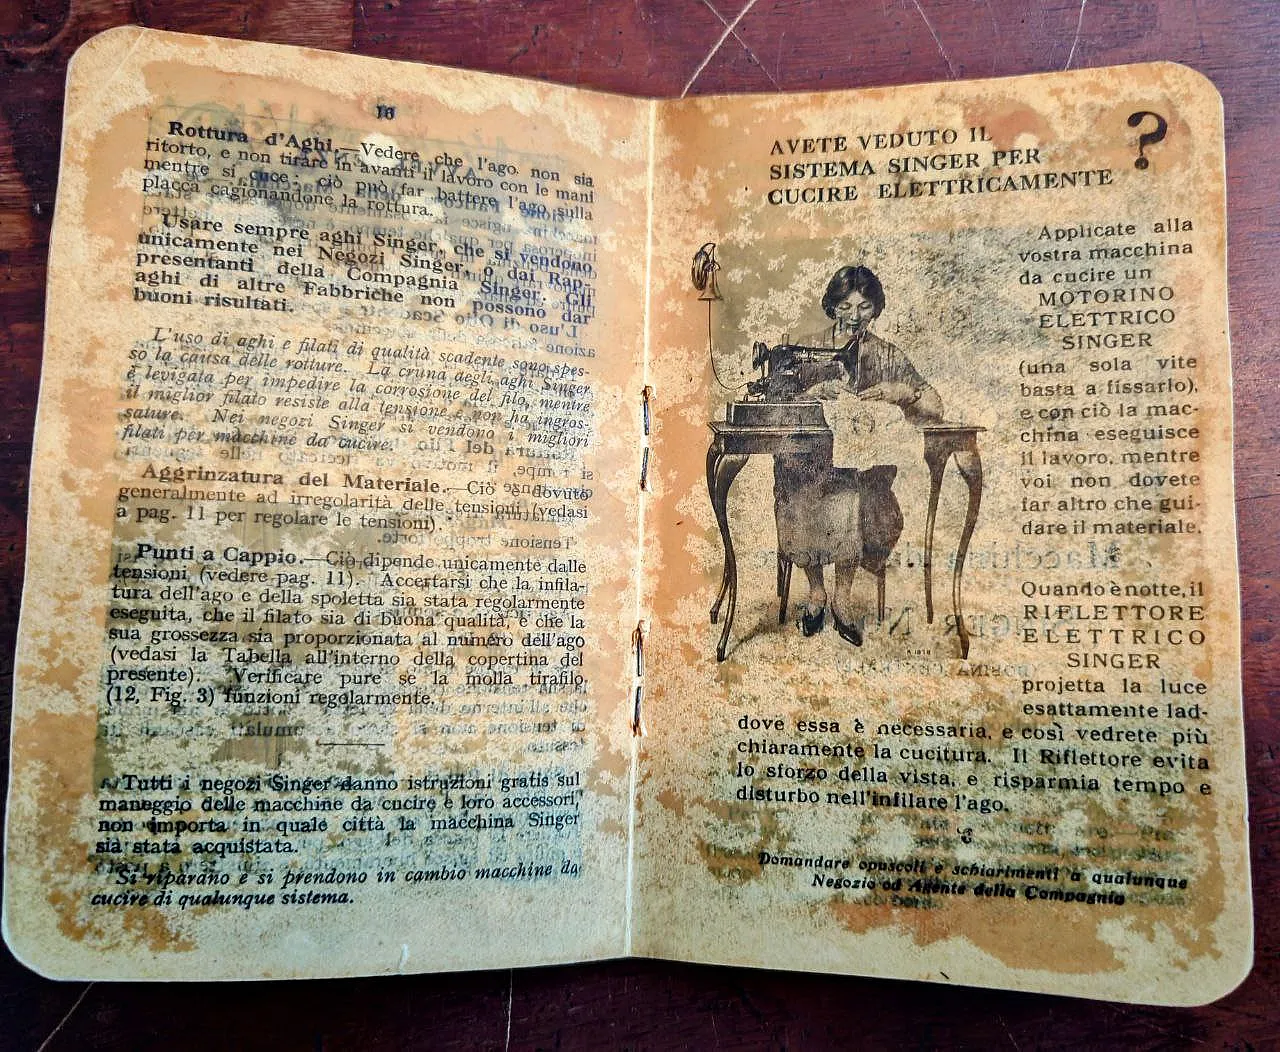 16
Rottura d'Aghi.—Vedere che l'ago non sia
ritorto, e non tirare in avanti il lavoro con le mani
mentre si cuce: ciò può far battere l'ago sulla
placca cagionandone la rottura.
Usare sempre aghi Singer, che si vendono
unicamente nei Negozi Singer, o dai Rap-
presentanti della Compagnia Singer. Gli
aghi di altre Fabbriche non possono dar
buoni risultati.
L'uso di aghi e filati di qualità scadente sono spes-
so la causa delle rotture. La cruna degli aghi Singer
è levigata per impedire la corrosione del filo, mentre
il miglior filato resiste alla tensione e non ha ingros-
sature. Nei negozi Singer si vendono i migliori
filati per macchine da cucire.
Aggrinzatura del Materiale.—Ciò è dovuto
generalmente ad irregolarità delle tensioni (vedasi
a pag. 11 per regolare le tensioni).
Punti a Cappio.—Ciò dipende unicamente dalle
tensioni (vedere pag. 11). Accertarsi che la infila-
tura dell'ago e della spoletta sia stata regolarmente
eseguita, che il filato sia di buona qualità, e che la
sua grossezza sia proporzionata al numero dell'ago
(vedasi la Tabella all'interno della copertina del
presente). Verificare pure se la molla tirafilo
(12, Fig. 3) funzioni regolarmente.
Tutti i negozi Singer danno istruzioni gratis sul
maneggio delle macchine da cucire e loro accessori,
non importa in quale città la macchina Singer
sia stata acquistata.
Si riparano e si prendono in cambio macchine da
cucire di qualunque sistema.
AVETE VEDUTO IL
SISTEMA SINGER PER
CUCIRE ELETTRICAMENTE
?
Applicate alla
vostra macchina
da cucire un
MOTORINO
ELETTRICO
SINGER
(una sola vite
basta a fissarlo),
e con ciò la mac-
china eseguisce
il lavoro, mentre
voi non dovete
far altro che gui-
dare il materiale.
Quando è notte, il
RIFLETTORE
ELETTRICO
SINGER
projetta la luce
esattamente lad-
dove essa è necessaria, e così vedrete più
chiaramente la cucitura. Il Riflettore evita
lo sforzo della vista, e risparmia tempo e
disturbo nell'infilare l'ago.
Domandare opuscoli e schiarimenti a qualunque
Negozio od Agente della Compagnia